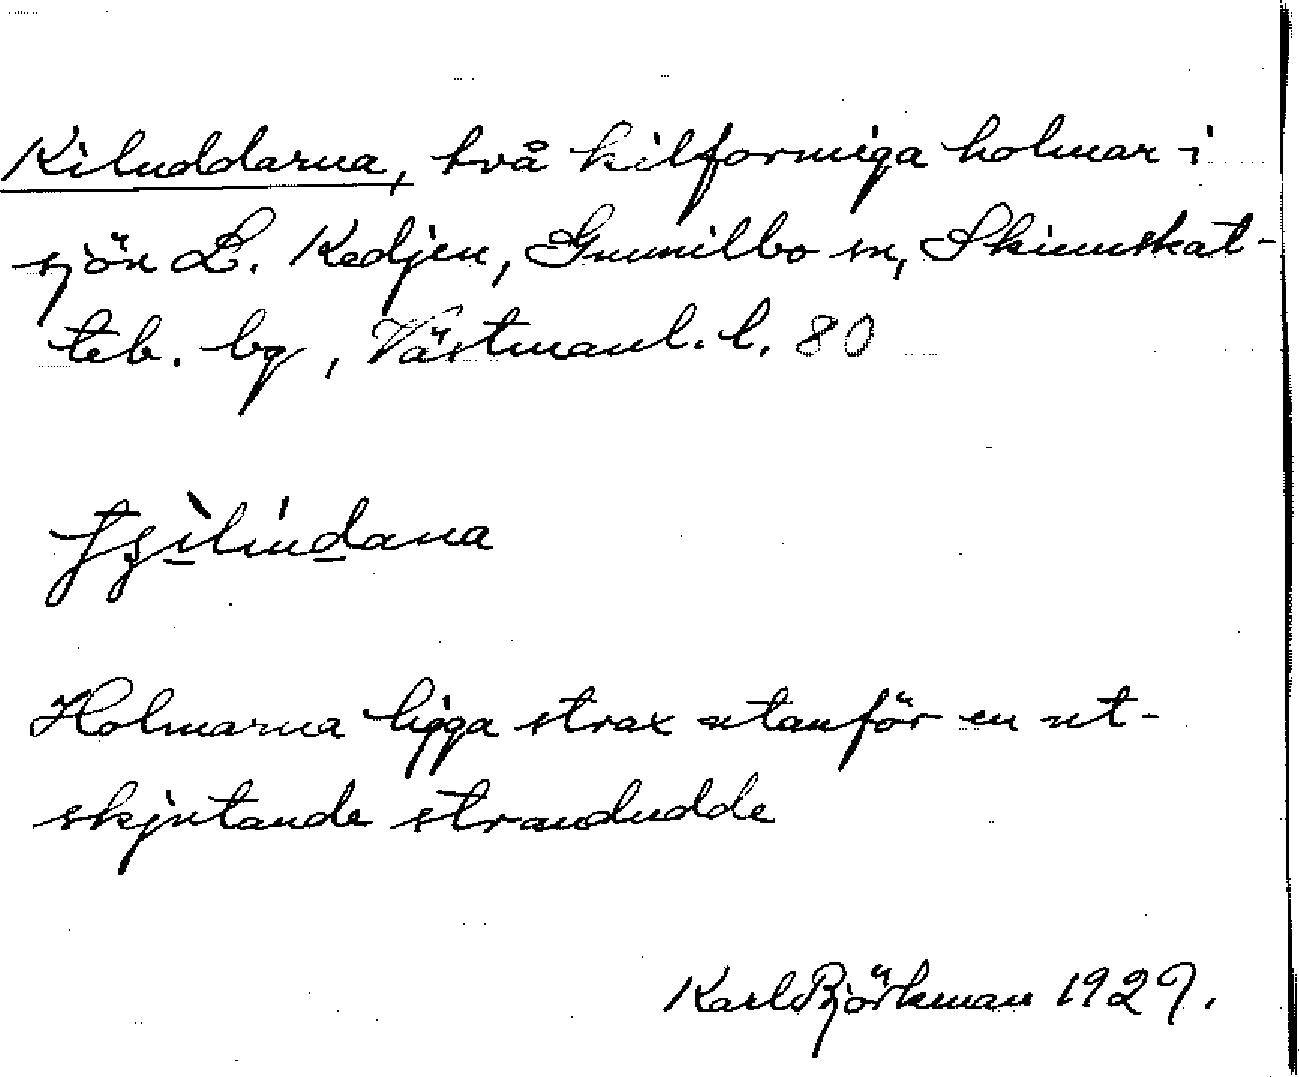 Kiluddarna, två kilformiga holmar i
sjön L. Kedjen, Gunnilbo sn, Skinnskat-
teb. bg, Västmanl. l. 80
Holmarna ligga strax utanför en ut-
skjutande strandudde
Karl Björkman 1929.